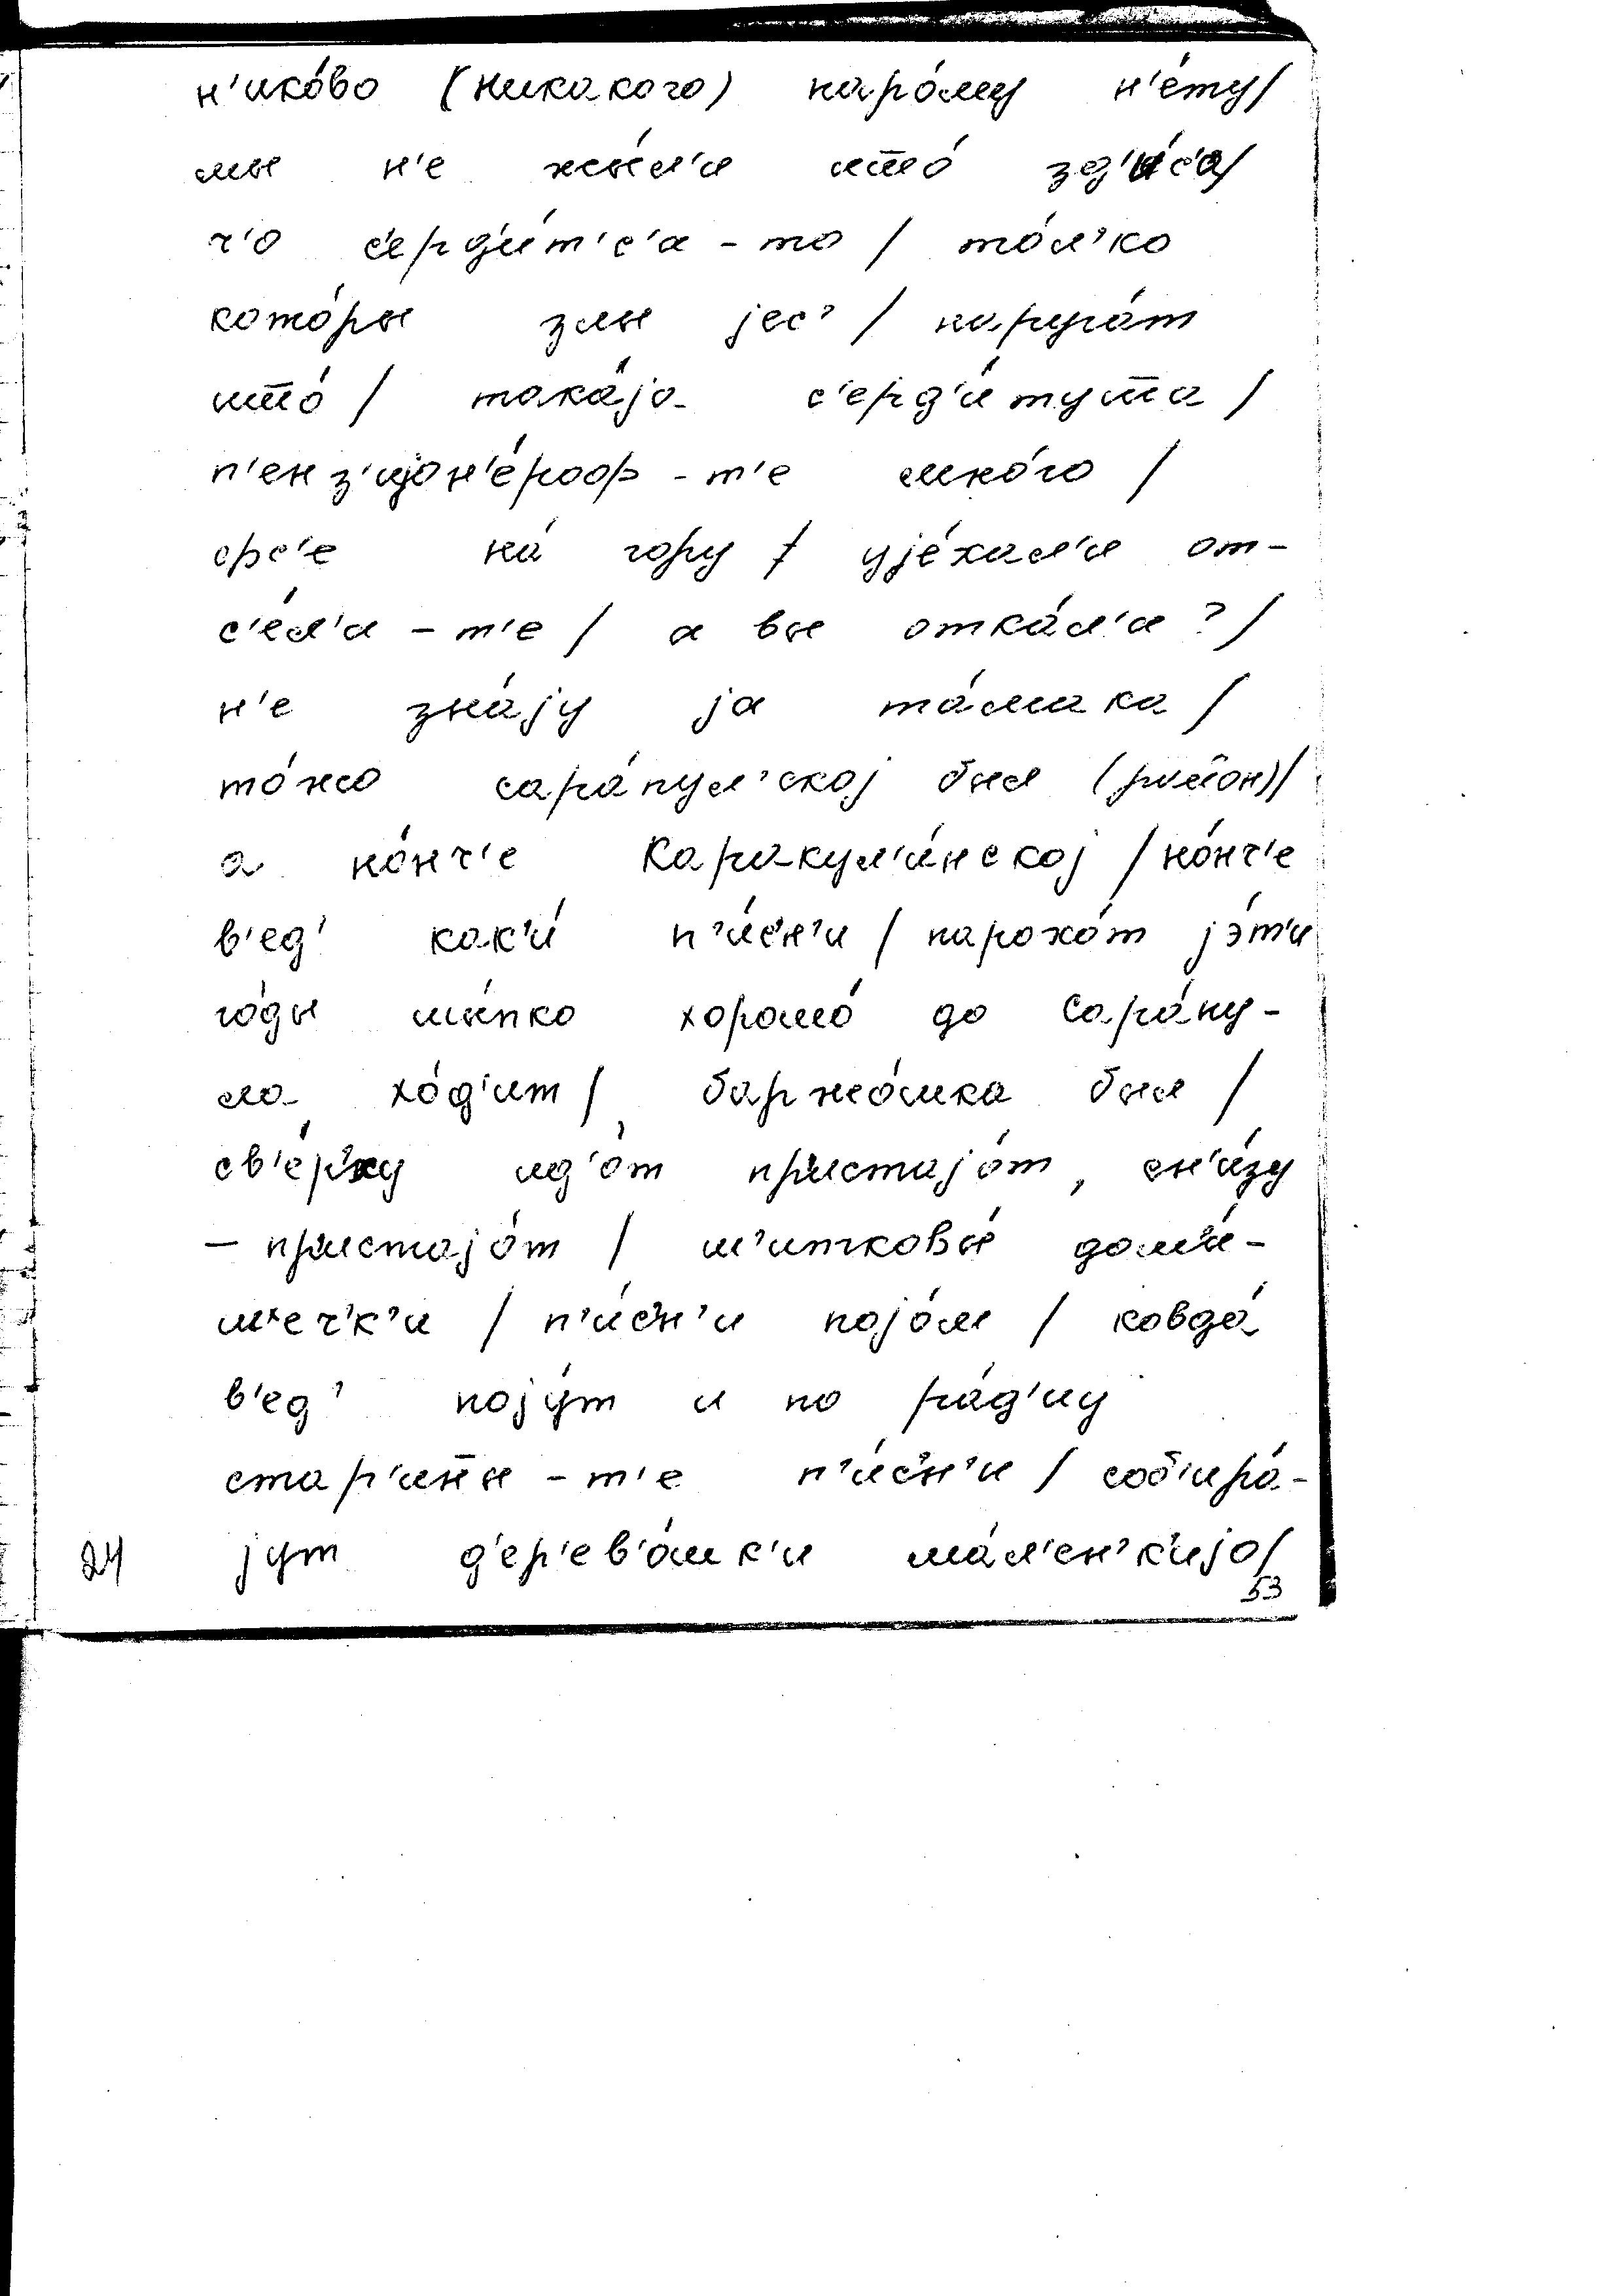 н'ико́во (никакого) наро́му н'е́ту/
мы н'е жы́л'и што̄́ зд'и́с'а/
ч'о с'ерд'и́т'с'а - то / то́л'ко
кото́ры злы jес' / наруга́т
што̄́ / така́jа с'ерд'и́тушта /
п'енз'ијон'е́роф - т'е мно́го /
фс'е на́ гору / уjе́хал'и от-
с'е́л'а - т'е / а вы отка́л'и ? /
н'е зна́jу jа та́мака /
то́жо сара́пул'скоj был (район)/
а но́нч'е Каракул'и́нскоj / но́нч'е
в'ед' как'и́ п'и́с'н'и / парохо́т jэ́т'и
го́ды шы́пко хорошо́ до Сара́пу-
ла хо́д'ит / баржо́шка был /
св'е́рху ид'о́т пр'истаjо́т, сн'и́зу
— пр'истаjо́т / ш'итковы́ домы́-
шеч'к'и / п'и́с'н'и поjо́м / ковда́
в'ед' поjу́т и по ра́д'иу
стар'ин̄ы - т'е п'и́с'н'и / соб'ира́-
24 jут д'ер'ев'а́шк'и ма́л'ен'к'иjо/
53